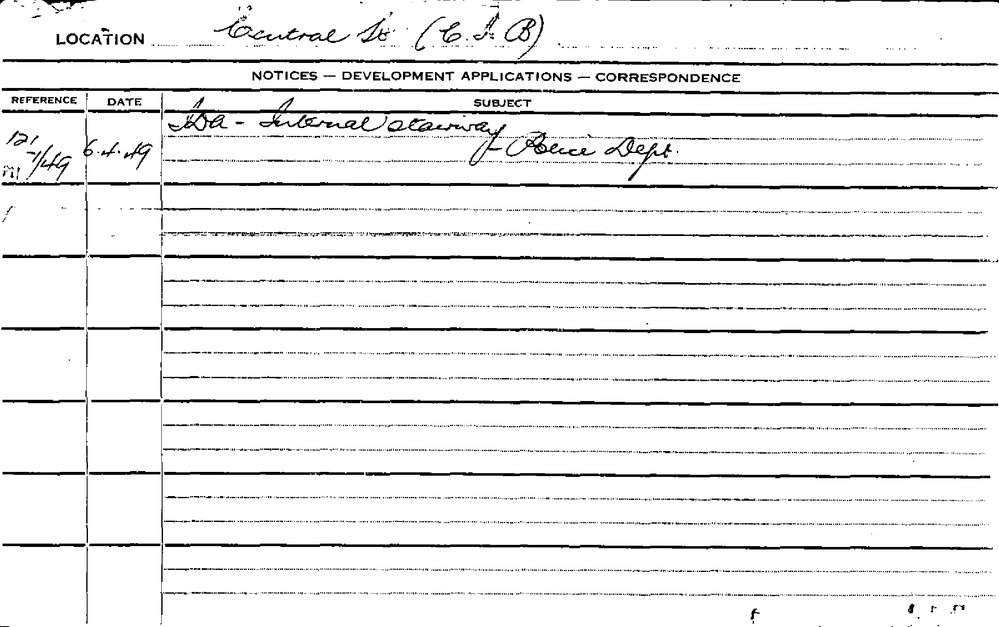 LOCATION Central St (C.I.B)
NOTICES — DEVELOPMENT APPLICATIONS — CORRESPONDENCE
REFERENCE DATE SUBJECT
IDA - Internal stairway
121
-1/49 6.4.49 - Police Dept.